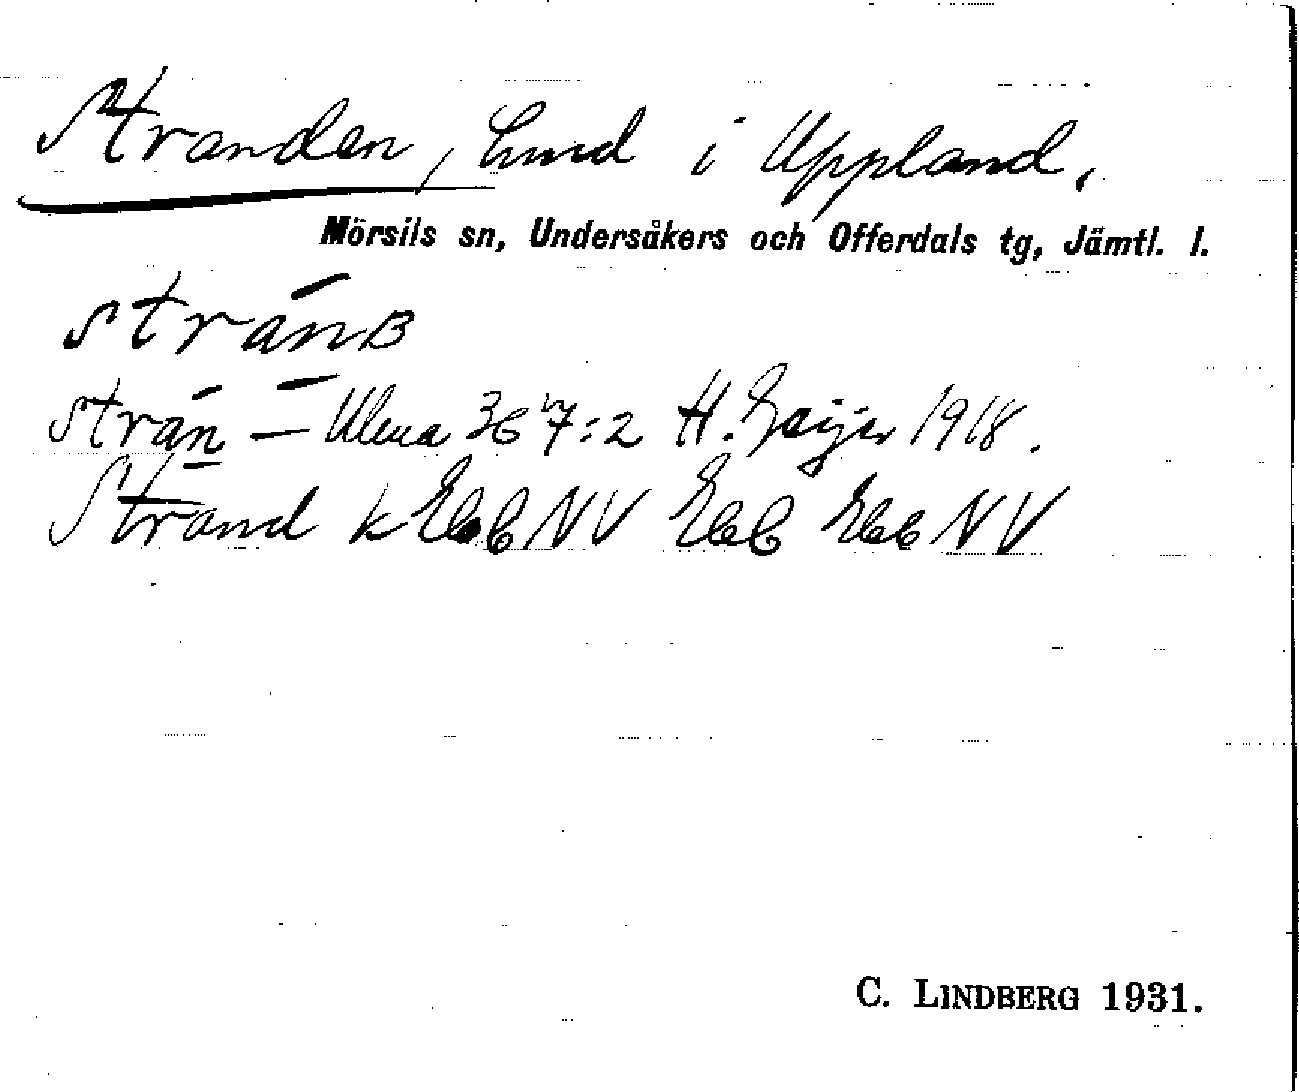 Stranden, hmd i Uppland,
Mörsils sn, Undersåkers och Offerdals tg, Jämtl. l.
stránʙ
strán — Ulma 367:2 H. Geijer 1918.
Strand k EkbNV Ekb EkbNV
C. LINDBERG 1931.